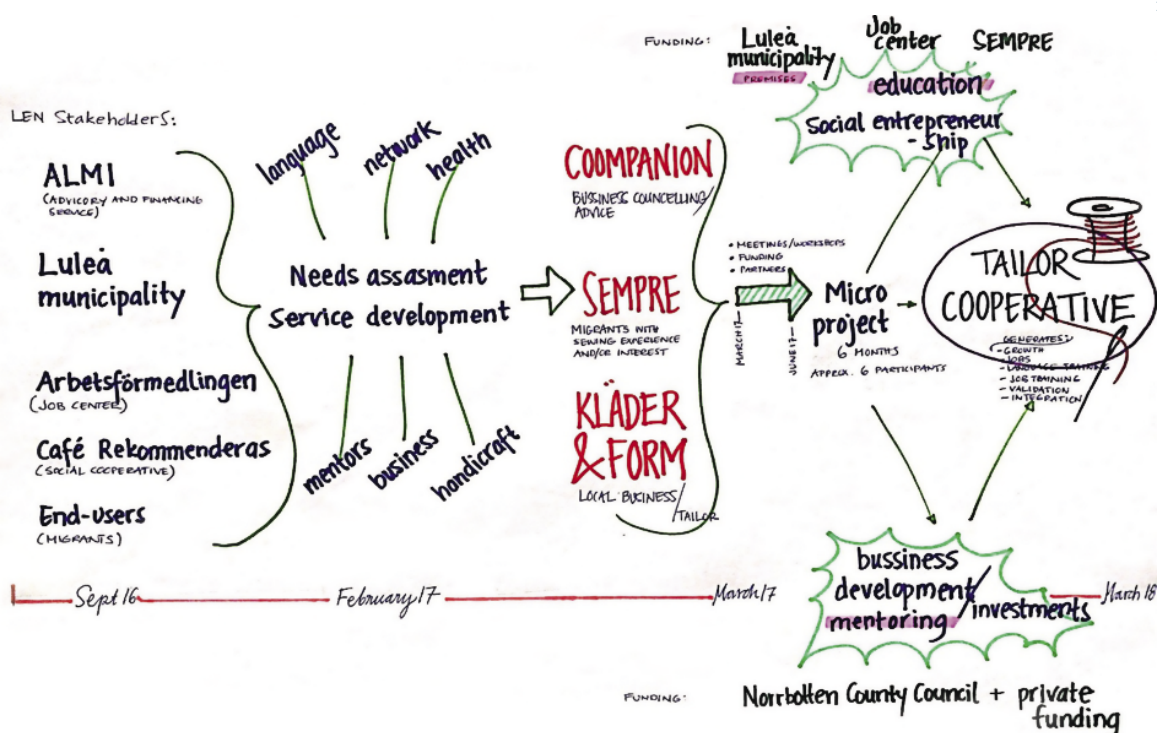 FUNDING:
Luleå
municipality
PREMISES
Job
center
SEMPRE
education
Social entrepreneur
-ship
LEN StakeholderS:
ALMI
(ADVICORY AND FINANCING
SERVICE)
Luleå
municipality
Arbetsförmedlingen
(JOB CENTER)
Café Rekommenderas
(SOCIAL COOPERATIVE)
End-users
(MIGRANTS)
language
network
health
Needs assasment
Service development
mentors
business
handicraft
COOMPANION
BUSSINESS COUNCELLING/
ADVICE
SEMPRE
MIGRANTS WITH
SEWING EXPERIENCE
AND/OR INTEREST
KLÄDER
&FORM
LOCAL BUSINESS/
TAILOR
• MEETINGS/WORKSHOPS
• FUNDING
• PARTNERS
MARCH 17
JUNE 17
Micro
project
6 MONTHS
APPROX. 6 PARTICIPANTS
TAILOR
COOPERATIVE
GENERATES:
- GROWTH
- JOBS
- LANGUAGE TRAINING
- JOB TRAINING
- VALIDATION
- INTEGRATION
bussiness
development/
mentoring
investments
Sept 16
February 17
March 17
March 18
FUNDING:
Norrbotten County Council + private
funding